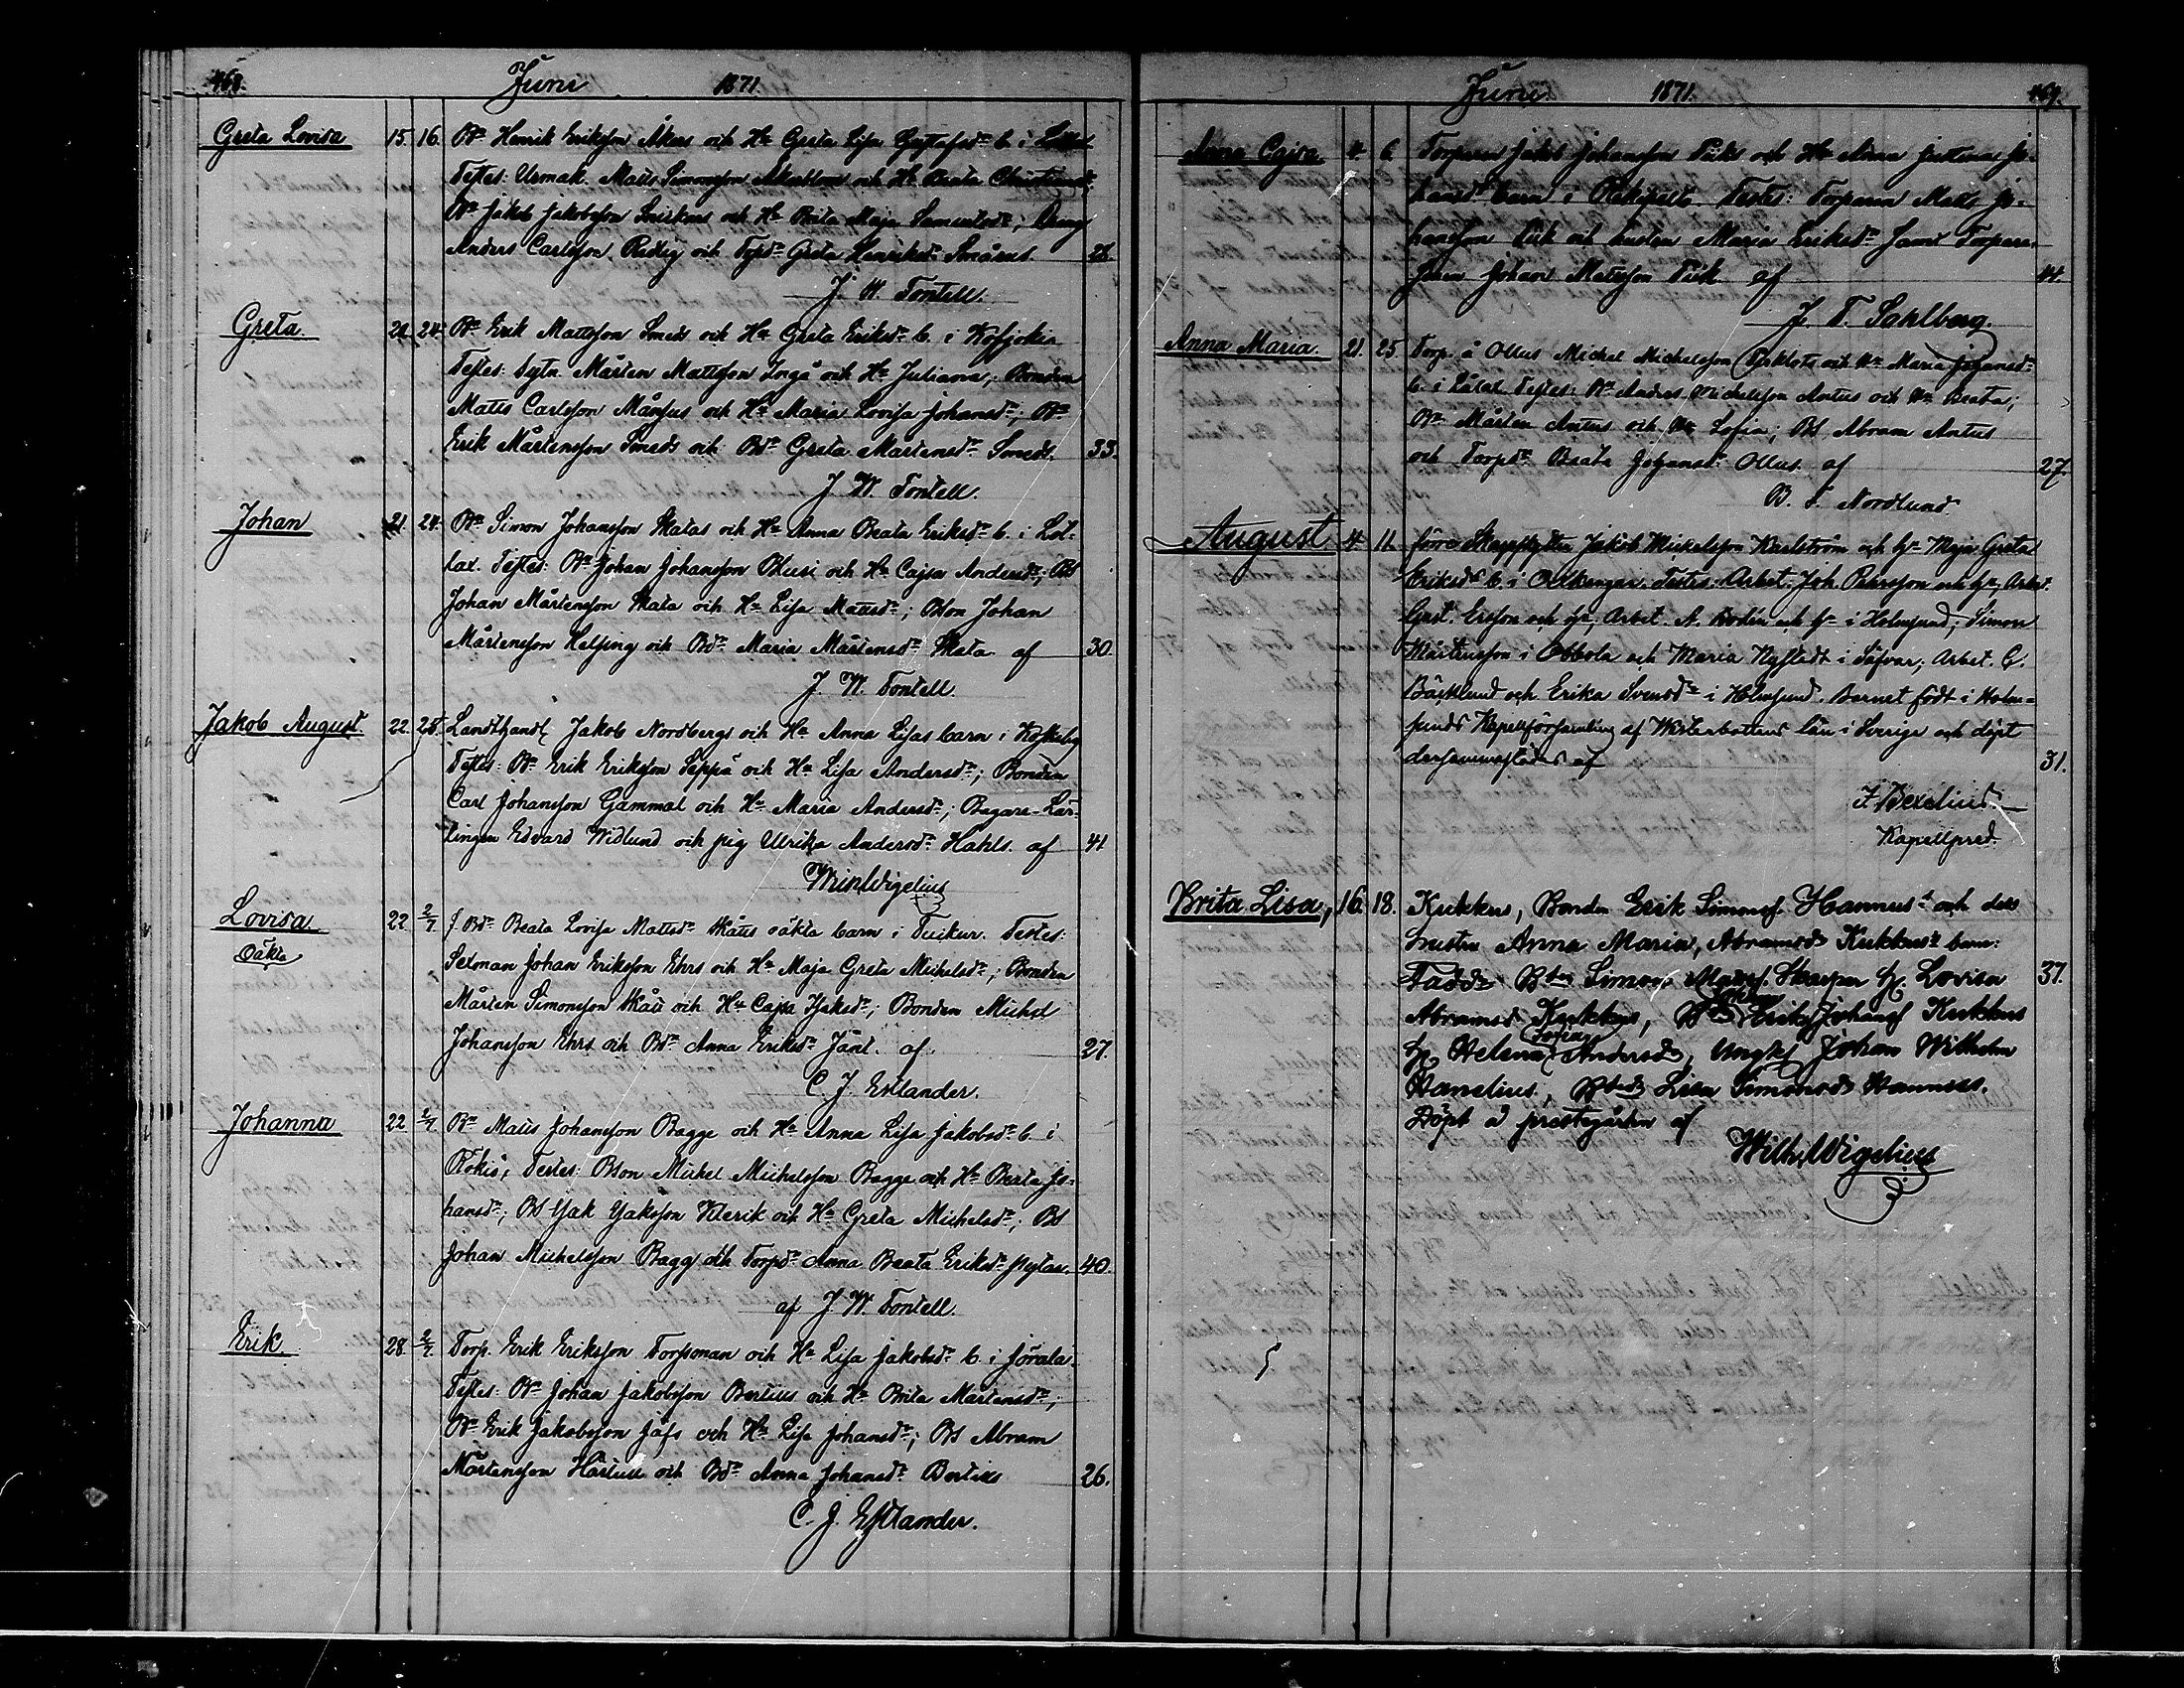 468. Juni 1871.
Greta Lovisa 15. 16. Bn Henrik Eriksson Åkers och Ha Greta Lisa Gustafsdr b. i
Testes: Urmak. Matts Simonsson och Ha Beata
Bn Jakob Jakobsson och Ha Brita Maja; Dräng
Anders Carlsson och Greta Henriksdr 28
J. W. Fontell.
Greta. 24. Bn Erik Mattsson Smeds och Ha Greta Eriksdr b. i
Testes: Mårten Mattsson Ingå och Ha Juliana; Bonden
Matts Carlsson Månsus och Ha Maria Lovisa Johansdr; Bn
Erik Mårtensson Smeds och Bdr Greta Mårtensdr Smeds. 33.
J. W. Fontell.
Johan 21. 24. Bn Simon Johansson Skatas och Ha Anna Beata Eriksdr b. i Lol-
lax. Testes: Bn Johan Johansson och Ha Cajsa Andersdr; BS
Johan Mårtensson Skata och Ha Lisa Mattsdr; BSon Johan
Mårtensson Helsing och Bdr Maria Mårtensdr Skata af 30.
J. W. Fontell.
Jakob August. 22. 28. Landthandl Jakob Nordbergs och Ha Anna Lisas barn i
Testes: Bn Erik Eriksson Seppä och Ha Lisa Andersdr; Bonden
Carl Johansson Gammal och Ha Maria Andersdr; Bagare-Lär-
lingen Edvard Widlund och pig Ulrika Andersdr Hahls. af 41
Wilh Wigelius
Lovisa 22. 2/7. f. Bdr Beata Lovisa Mattsdr Skatts oäkta barn i Tuckur. Testes:
Oäkta
Sexman Johan Eriksson Ehrs och Ha Maja Greta Michelsdr; Bonden
Mårten Simonsson och Ha Cajsa Isaksdr; Bonden Michel
Johansson Ehrs och Bdr Anna Eriksdr Jånt. af 27.
C. J. Estlander.
Johanna 22 2/7. Bn Matts Johansson Bagge och Ha Anna Lisa Jakobsdr b. i
Rökiö, Testes: BSon Mickel Michelsson Bagge och Ha Beata Jo-
hansdr; BS Isak Isaksson Klerik och Ha Greta Michelsdr; BS
Johan Michelsson Bagg och Torpdr Anna Beata Eriksdr 40.
af J. W. Fontell.
Erik 28. 2/7. Torp. Erik Eriksson Forssman och Ha Lisa Jakobsdr b. i Jörala.
Testes: Bn Johan Jakobsson Bertils och Ha Brita Mårtensdr;
Bn Erik Jakobsson Jåfs och Ha Lisa Johansdr; BS Abram
Mårtensson Härtull och Bdr Anna Johansdr Bertils 26.
C. J. Estlander.
Juni. 1871. 469.
Anna Cajsa. 4. 6. Torparen Jakob Johansson och Ha Anna Jo-
hansdr barn i Rekipelto. Testes: Torparen Matts Jo-
hansson och hustru Maria Eriksdr samt Torpare-
sonen Johan Mattsson af 44.
J. F. Sahlberg.
Anna Maria. 21. 25. Torp. å Ollus Michel Michelsson och Ha Maria Johansdr
b. i Testes: Bn Anders Michelsson Antus och Ha Beata;
Bn Mårten Antus och Ha Sofia; BS Abram Antus
och Torpdr Beata Johansdr Ollus. af 27
B. F. Nordlund
August 4. 11. förre Jakob Mickelsson Karlström och h. Maja Greta
Eriksdr b. i Testes: Arbet. Joh. Pehrsson och h., Arbet.
Gust. Ersson och h., Arbet. A. Bodén och h. i Holmsund; Simon
Mårtensson i Obbola och Maria Nystedt i Säfvar; Arbet. C.
Bäcklund och Erika Svensdr i Holmsund. Barnet födt i Holm-
sunds Kapellförsamling af Westerbottens län i Sverige och döpt
dersammastädes af 31.
F. Bexelius
Kapellpred.
Brita Lisa, 16. 18. Kukkus, Bonden Erik Simonss. Hannus' och dess
hustru Anna Maria, Abramsdr Kukkus's barn:
Fadd: Bn Simon Matss. h. Lovisa 37.
Abramsd Kukkus, Erik Johanss Kukkus
h Helena Sofia Andersdr, Johan Wilhelm
Hanelius, Lisa Simonsdr Hannus.
Döpt å prestgården af
Wilh Wigelius